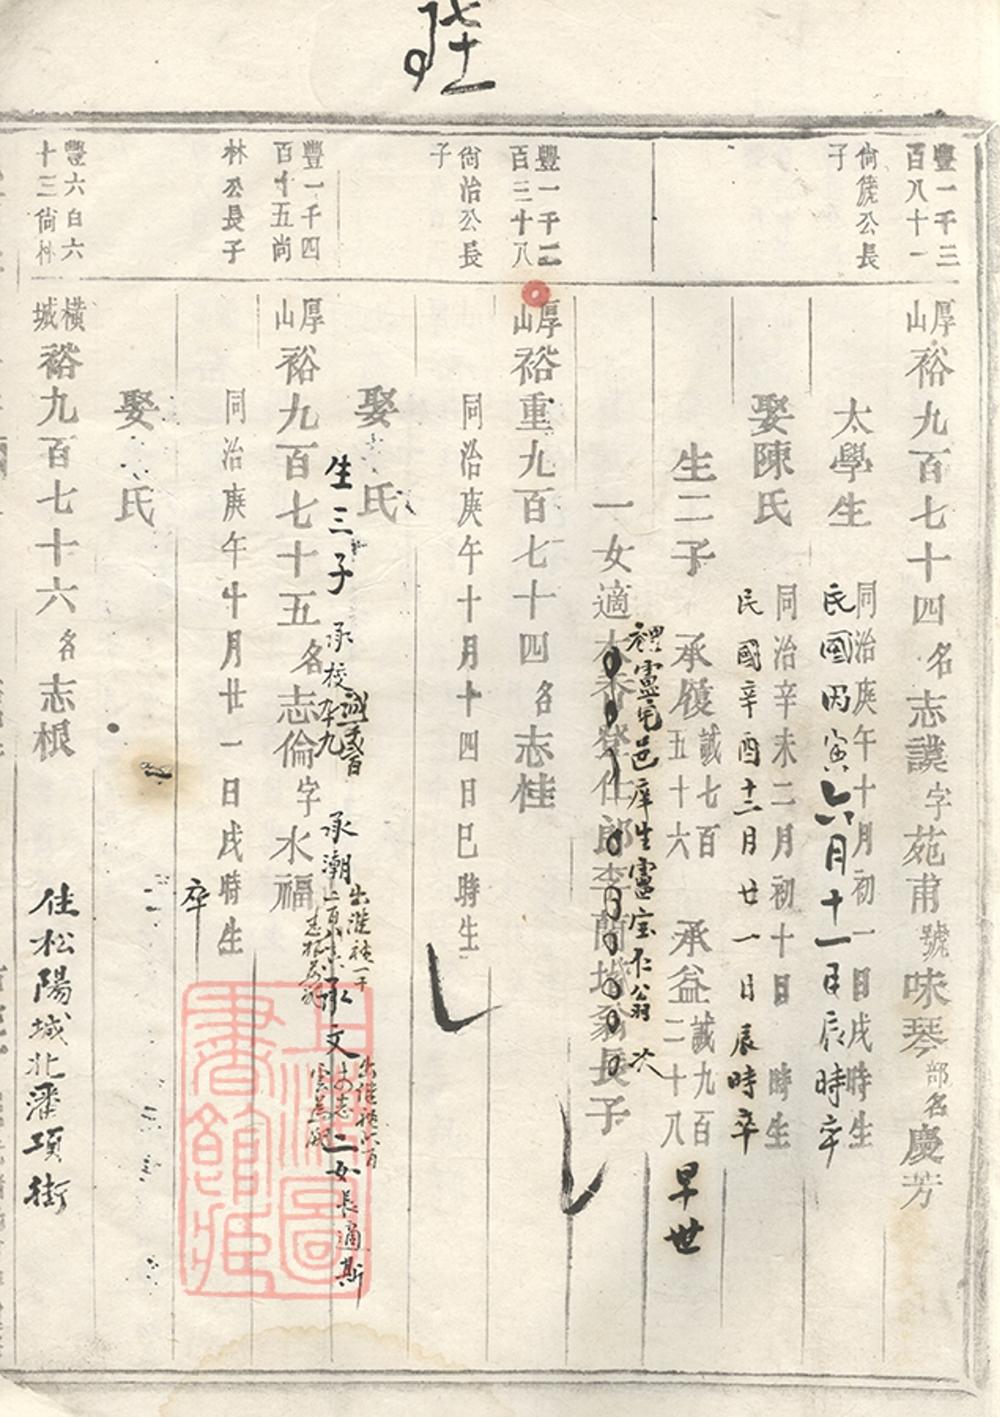 陸
豐一千三
百八十一
尙㷛公長
子
厚
山
裕九百七十四名志謨字苑甫號味琴部名慶芳
太學生
同治庚午十月初一日戌時生
民國丙寅六月十一日辰時卒
娶陳氏
同治辛未二月初十日時生
民國辛酉十二月廿一日辰時卒
生二子
承履
誠七百
五十六
承益
誠九百
二十八
早世
一女適
郎李蘭城翁長子
邑庠生
仁翁次
豐一千二
百三十八
尙治公長
子
厚
山
裕重九百七十四名志桂
同治庚午十月十四日巳時生
娶氏
生三子
承校
承潮
承文
二女長適斯
豐一千四
百十五尙
林公長子
厚
山
裕九百七十五名志倫字水福
同治庚午十月廿一日戌時生
卒
娶氏
豐六百六
十三尙林
橫
城
裕九百七十六名志根
住松陽城北潘項街
上海圖
書館藏